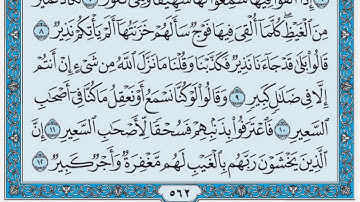 إِذَا أُلْقُوا۟ فِيهَا سَمِعُوا۟ لَهَا شَهِيقًا وَهِىَ تَفُورُ ٧ تَكَادُ تَمَيَّزُ
مِنَ ٱلْغَيْظِ ۖ كُلَّمَآ أُلْقِىَ فِيهَا فَوْجٌ سَأَلَهُمْ خَزَنَتُهَآ أَلَمْ يَأْتِكُمْ نَذِيرٌ ٨
قَالُوا۟ بَلَىٰ قَدْ جَآءَنَا نَذِيرٌ فَكَذَّبْنَا وَقُلْنَا مَا نَزَّلَ ٱللَّهُ مِن شَىْءٍ إِنْ أَنتُمْ
إِلَّا فِى ضَلَٰلٍ كَبِيرٍ ٩ وَقَالُوا۟ لَوْ كُنَّا نَسْمَعُ أَوْ نَعْقِلُ مَا كُنَّا فِىٓ أَصْحَٰبِ
ٱلسَّعِيرِ ١٠ فَٱعْتَرَفُوا۟ بِذَنۢبِهِمْ فَسُحْقًا لِّأَصْحَٰبِ ٱلسَّعِيرِ ١١ إِنَّ
ٱلَّذِينَ يَخْشَوْنَ رَبَّهُم بِٱلْغَيْبِ لَهُم مَّغْفِرَةٌ وَأَجْرٌ كَبِيرٌ ١٢
٥٦٢